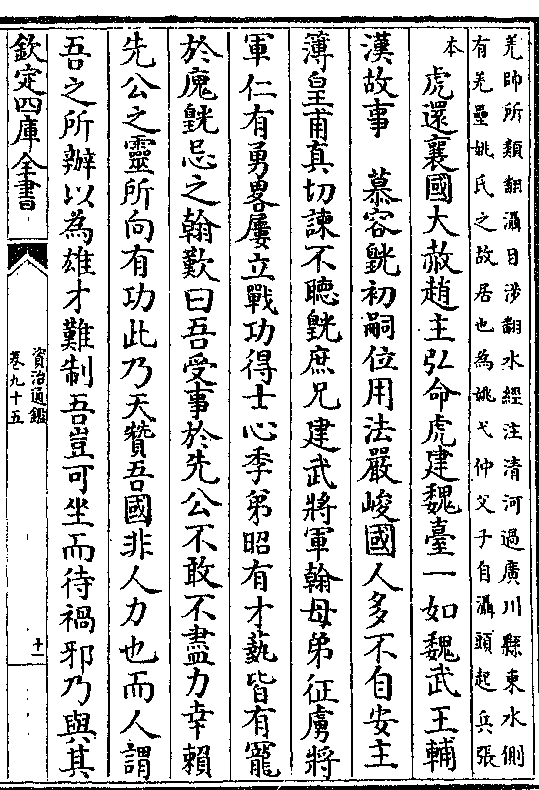 羌帥所類翻灄日涉翻水經注清河過廣川縣東水側
有羌壘姚氏之故居也為姚弋仲父子自灄頭起兵張
本
虎還襄國大赦趙主弘命虎建魏臺一如魏武王輔
漢故事　慕容皝初嗣位用法嚴峻國人多不自安主
簿皇甫真切諫不聽皝庶兄建武將軍翰母弟征虜將
軍仁有勇畧屢立戰功得士心季弟昭有才藝皆有寵
於廆皝忌之翰歎曰吾受事於先公不敢不盡力幸賴
先公之靈所向有功此乃天贊吾國非人力也而人謂
吾之所辦以為雄才難制吾豈可坐而待禍邪乃與其
欽定四庫全書
資治通鑑
卷九十五
十一